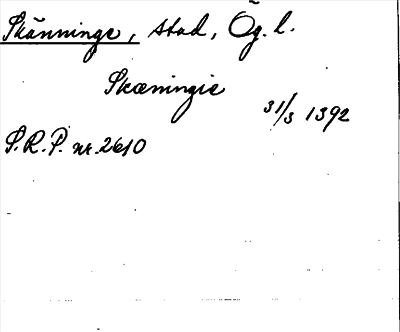 Skänninge, stad, Ög. l.
Skæningie
31/3 1392
S.R.P. nr. 2610